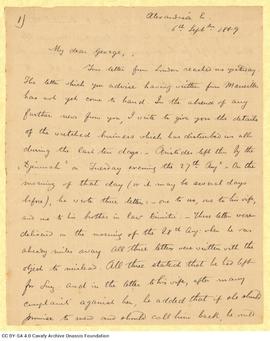 1)
Alexandria E.
6th Septber 1889
My dear George,
Your letter from London reached us yesterday.
The letter which you advise having written from Marseilles
has not yet come to hand. In the absence of any
further news from you, I write to give you the details
of the wretched business which has disturbed us all
during the last ten days. Aristides left the
"Djemnah" on Tuesday evening the 27th Augt - On the
morning of that day (or it may be several days
before), he wrote three letters: - one to us, one to his wife,
and one to his brother in law Dimitri - These letters were
delivered on the morning of the 28th Augt when he was
already miles away. All three letters were written with the
object to mislead. All three stated that he had left
for and in the letter to his wife, after many
complaints against her, he added that if she should
promise to and should call him back, he will
CC BY-SA 4.0 Cavafy Archive Onassis Foundation